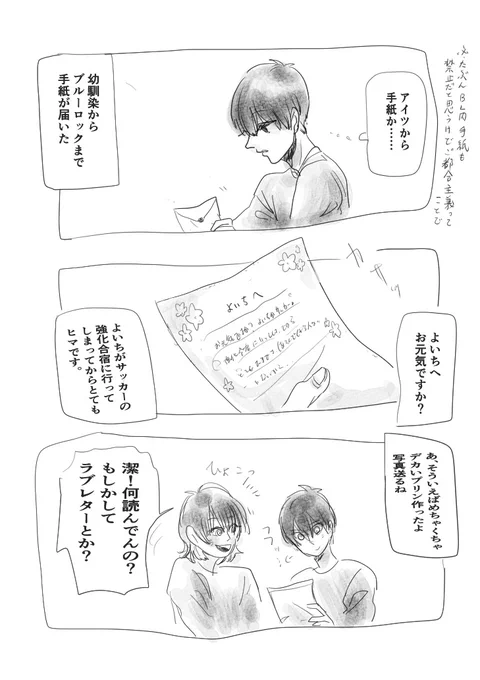 ※たぶんBL内手紙も
禁止だと思うけどご都合主義って
ことで
アイツから
手紙か……
幼馴染から
ブルーロックまで
手紙が届いた
よいちへ
お元気ですか？
よいちへ
よいちがサッカーの
強化合宿に行って
しまってからとても
ヒマです。
あ、そういえばめちゃくちゃ
デカいプリン作ったよ
写真送るね
ひょこっ
潔！何読んでんの？
もしかして
ラブレターとか？